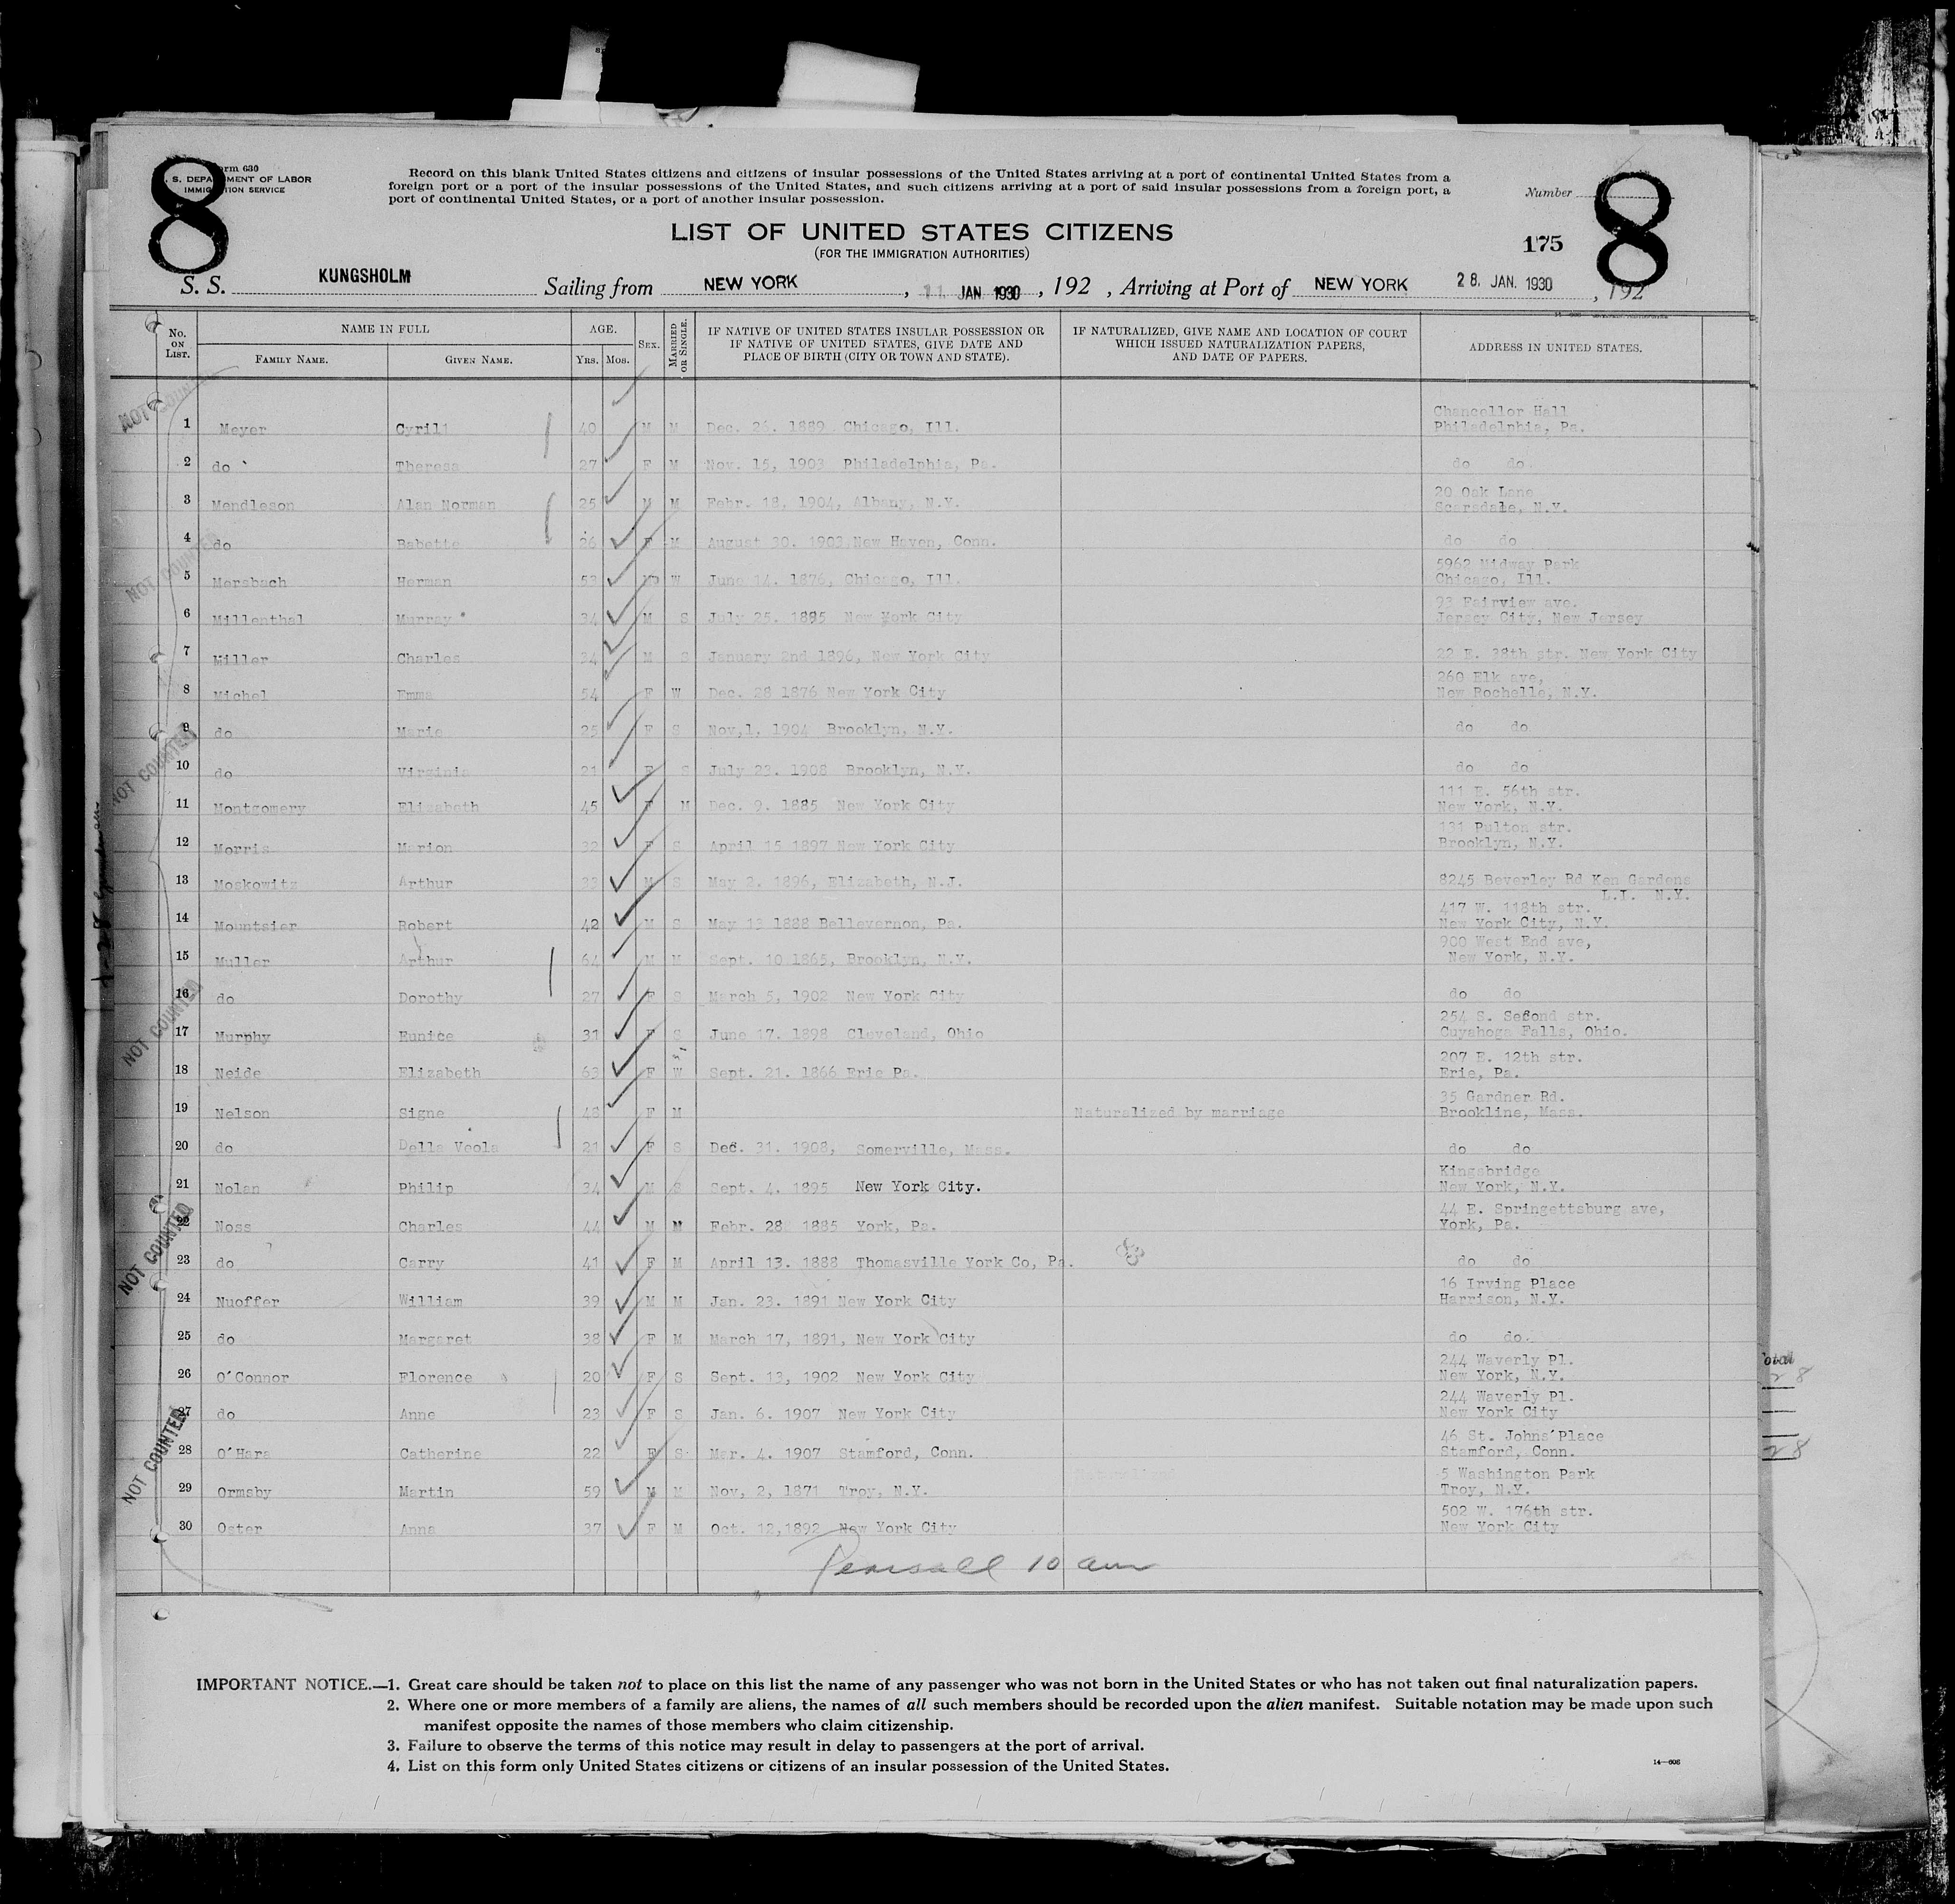 8
Form 630
U. S. DEPARTMENT OF LABOR
IMMIGRATION SERVICE
Record on this blank United States citizens and citizens of insular possessions of the United States arriving at a port of continental United States from a
foreign port or a port of the insular possessions of the United States, and such citizens arriving at a port of said insular possessions from a foreign port, a
port of continental United States, or a port of another insular possession.
Number
8
LIST OF UNITED STATES CITIZENS
(FOR THE IMMIGRATION AUTHORITIES)
175
S. S. KUNGSHOLM Sailing from NEW YORK, 11 JAN 1930, 192 , Arriving at Port of NEW YORK 28. JAN. 1930, 192
No. ON LIST. NAME IN FULL FAMILY NAME. GIVEN NAME. AGE. YRS. MOS. SEX. MARRIED OR SINGLE. IF NATIVE OF UNITED STATES INSULAR POSSESSION OR IF NATIVE OF UNITED STATES, GIVE DATE AND PLACE OF BIRTH (CITY OR TOWN AND STATE). IF NATURALIZED, GIVE NAME AND LOCATION OF COURT WHICH ISSUED NATURALIZATION PAPERS, AND DATE OF PAPERS. ADDRESS IN UNITED STATES.
NOT COUNTED
Chancellor Hall
1 Meyer Cyrill 40 M M Dec. 26. 1889 Chicago, Ill. Philadelphia, Pa.
2 do Theresa 27 F M Nov. 15, 1903 Philadelphia, Pa. do do
20 Oak Lane
3 Mendleson Alan Norman 25 M M Febr. 18. 1904, Albany, N.Y. Scarsdale, N.Y.
4 do Babette 26 F M August 30. 1903 New Haven, Conn. do do
NOT COUNTED
5962 Midway Park
5 Mersbach Herman 53 W June 14. 1876, Chicago, Ill. Chicago, Ill.
93 Fairview ave.
6 Millenthal Murray 34 M S July 25. 1895 New York City Jersey City, New Jersey
7 Miller Charles 34 M S January 2nd 1896, New York City 22 E. 38th str. New York City
260 Elk ave,
8 Michel Emma 54 F W Dec. 28 1876 New York City New Rochelle, N.Y.
9 do Marie 25 F S Nov,1, 1904 Brooklyn, N.Y. do do
NOT COUNTED
10 do Virginia 21 F S July 23. 1908 Brooklyn, N.Y. do do
111 E. 56th str.
11 Montgomery Elizabeth 45 F M Dec. 9. 1885 New York City New York, N.Y.
131 Fulton str.
12 Morris Marion 32 F S April 15 1897 New York City Brooklyn, N.Y.
13 Moskowitz Arthur 33 M S May 2. 1896, Elizabeth, N.J. 8245 Beverley Rd Kew Gardens
L.I. N.Y.
417 W. 118th str.
14 Mountsier Robert 42 M S May 13 1888 Bellevernon, Pa. New York City, N.Y.
900 West End ave,
15 Muller Arthur 64 M M Sept. 10 1865, Brooklyn, N.Y. New York, N.Y.
16 do Dorothy 27 F S March 5, 1902 New York City do do
NOT COUNTED
254 S. Second str.
17 Murphy Eunice 31 F S June 17. 1898 Cleveland, Ohio Cuyahoga Falls, Ohio.
207 E. 12th str.
18 Neide Elizabeth 63 F W Sept. 21. 1866 Erie Pa. Erie, Pa.
35 Gardner Rd.
19 Nelson Signe 48 F M Naturalized by marriage Brookline, Mass.
20 do Della Veola 21 F S Dec. 31. 1908, Somerville, Mass. do do
Kingsbridge
21 Nolan Philip 34 M S Sept. 4. 1895 New York City. New York, N.Y.
44 E. Springettsburg ave,
22 Noss Charles 44 M M Febr. 28 1885 York, Pa. York, Pa.
NOT COUNTED
23 do Carry 41 F M April 13. 1888 Thomasville York Co, Pa. do do
16 Irving Place
24 Nuoffer William 39 M M Jan. 23. 1891 New York City Harrison, N.Y.
25 do Margaret 38 F M March 17, 1891, New York City do do.
244 Waverly Pl.
26 O'Connor Florence 20 F S Sept. 13, 1902 New York City New York, N.Y.
244 Waverly Pl.
27 do Anne 23 F S Jan. 6. 1907 New York City New York City
46 St. Johns'Place
28 O'Hara Catherine 22 F S Mar. 4. 1907 Stamford, Conn. Stamford, Conn.
NOT COUNTED
5 Washington Park
29 Ormsby Martin 59 M M Nov, 2, 1871 Troy, N.Y. Troy, N.Y.
502 W. 176th str.
30 Oster Anna 37 F M Oct. 12,1892 New York City New York City
Pearsall 10 am
otal
28
28
IMPORTANT NOTICE.—1. Great care should be taken not to place on this list the name of any passenger who was not born in the United States or who has not taken out final naturalization papers.
2. Where one or more members of a family are aliens, the names of all such members should be recorded upon the alien manifest. Suitable notation may be made upon such
manifest opposite the names of those members who claim citizenship.
3. Failure to observe the terms of this notice may result in delay to passengers at the port of arrival.
4. List on this form only United States citizens or citizens of an insular possession of the United States.
14—606